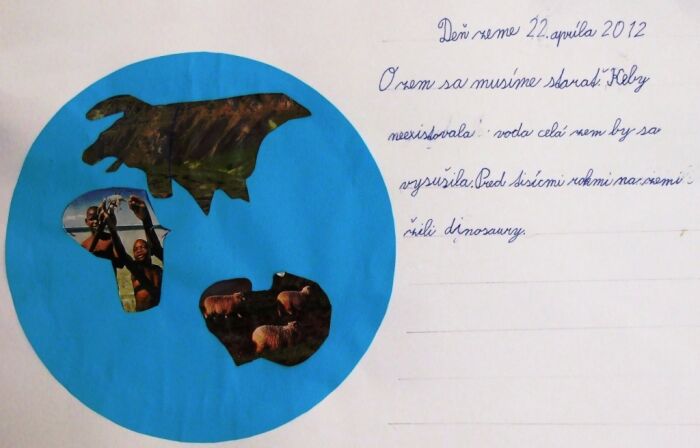 Deň zeme 22. apríla 2012
O zem sa musíme starať. Keby
neexistovala voda celá zem by sa
vysušila. Pred tisícmi rokmi na zemi
žili dinosaury.